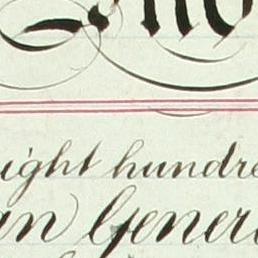 ight hundre
an Gener